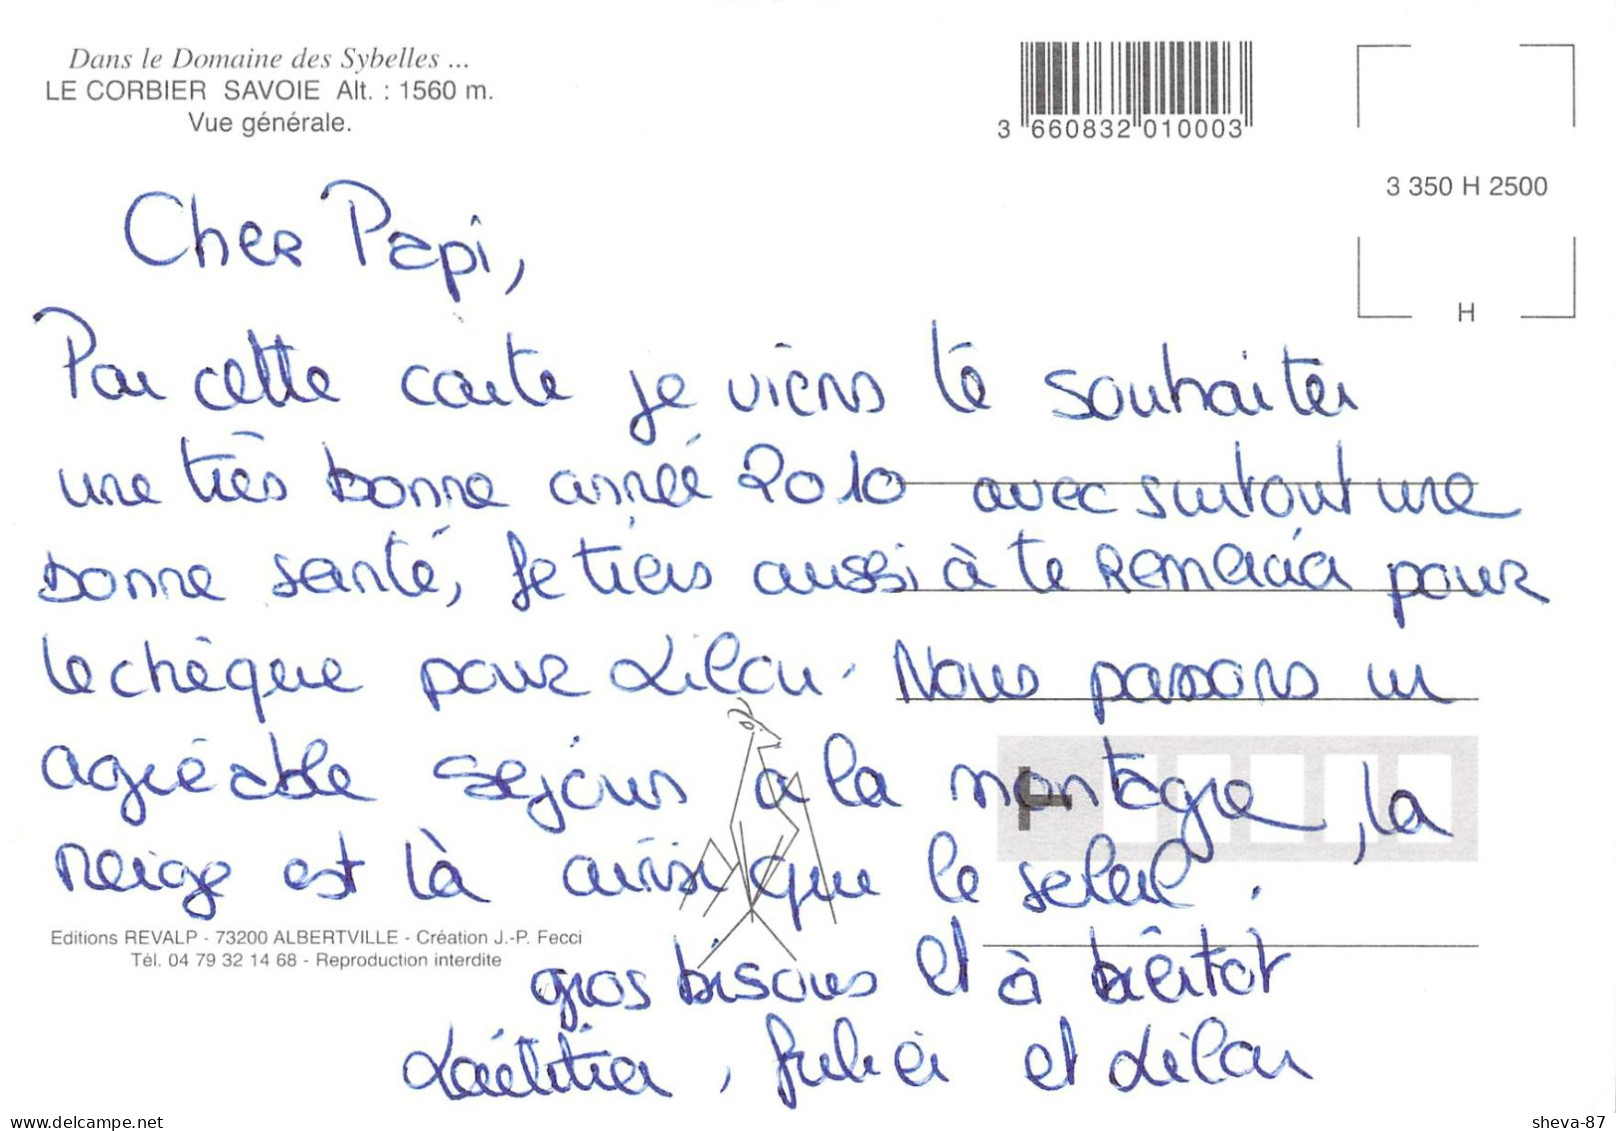 Dans le Domaine des Sybelles ...
LE CORBIER SAVOIE Alt. : 1560 m.
Vue générale.
3 660832 010003
3 350 H 2500
H
Cher Papi,
Par cette carte je viens te souhaiter
une très bonne année 2010 avec surtout une
bonne santé, Je tiens aussi à te remercier pour
le chèque pour Lilou. Nous passons un
agréable sejour à la montagne, la
neige est là ainsi que le soleil.
Editions REVALP - 73200 ALBERTVILLE - Création J.-P. Fecci
Tél. 04 79 32 14 68 - Reproduction interdite
gros bisous et à bientôt
Laëtitia, Julien et Lilou
delcampe.net
sheva-87